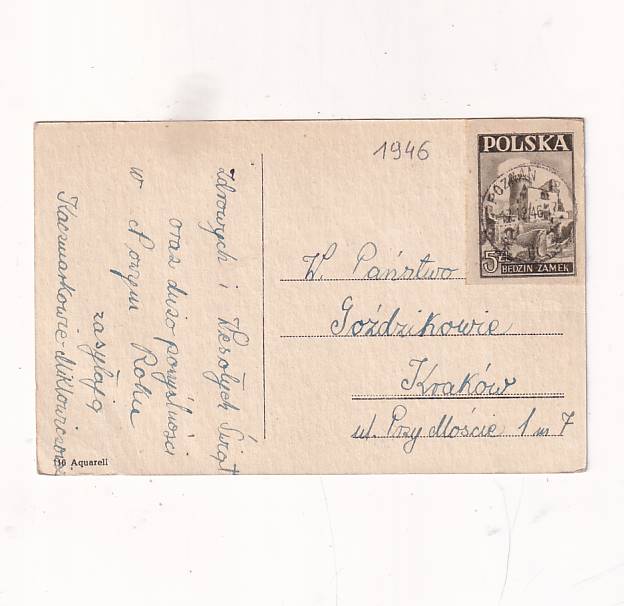 Zdrowych i Wesołych Świąt
oraz dużo pomyślności
w Nowym Roku
zasyłają
Kaczmarkowie-
16 Aquarell
1946
POLSKA
POZNAŃ
12 46
5 ZŁ
BĘDZIN-ZAMEK
W. Państwo
Goździkowie
Kraków
ul. Przy Moście 1 m 7